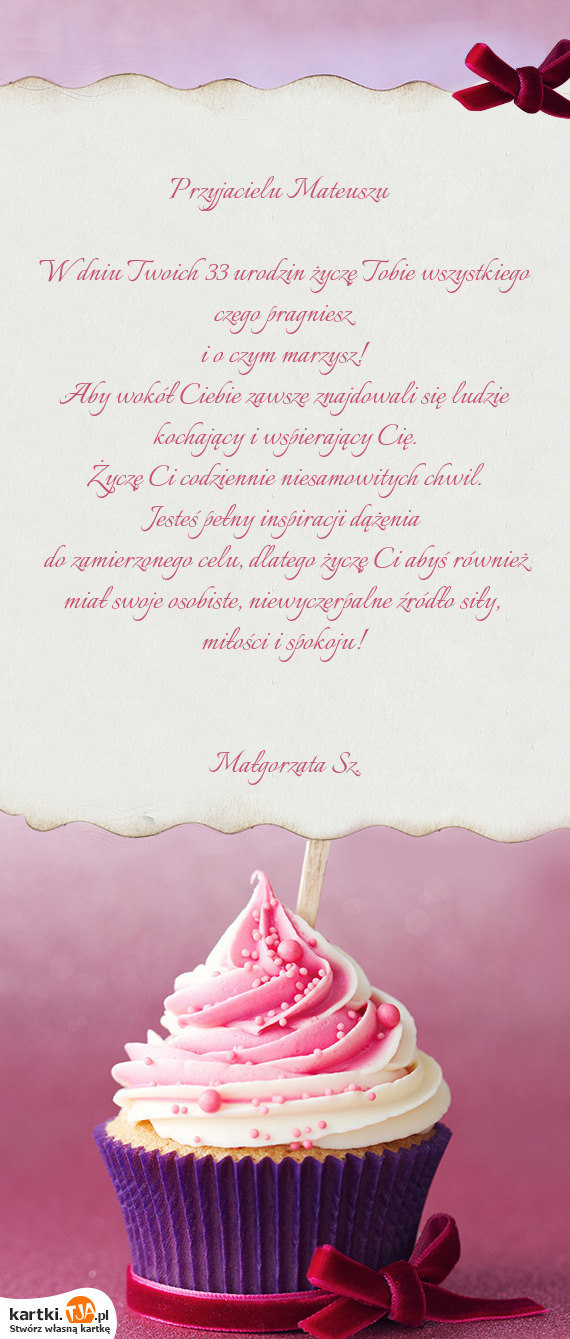 Przyjacielu Mateuszu
W dniu Twoich 33 urodzin życzę Tobie wszystkiego
czego pragniesz
i o czym marzysz!
Aby wokół Ciebie zawsze znajdowali się ludzie
kochający i wspierający Cię.
Życzę Ci codziennie niesamowitych chwil.
Jesteś pełny inspiracji dążenia
do zamierzonego celu, dlatego życzę Ci abyś również
miał swoje osobiste, niewyczerpalne źródło siły,
miłości i spokoju!
Małgorzata Sz.
kartki.TJA.pl
Stwórz własną kartkę